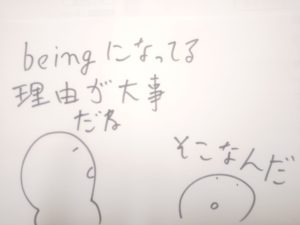 beingになってる
理由が大事
だね
そこなんだ